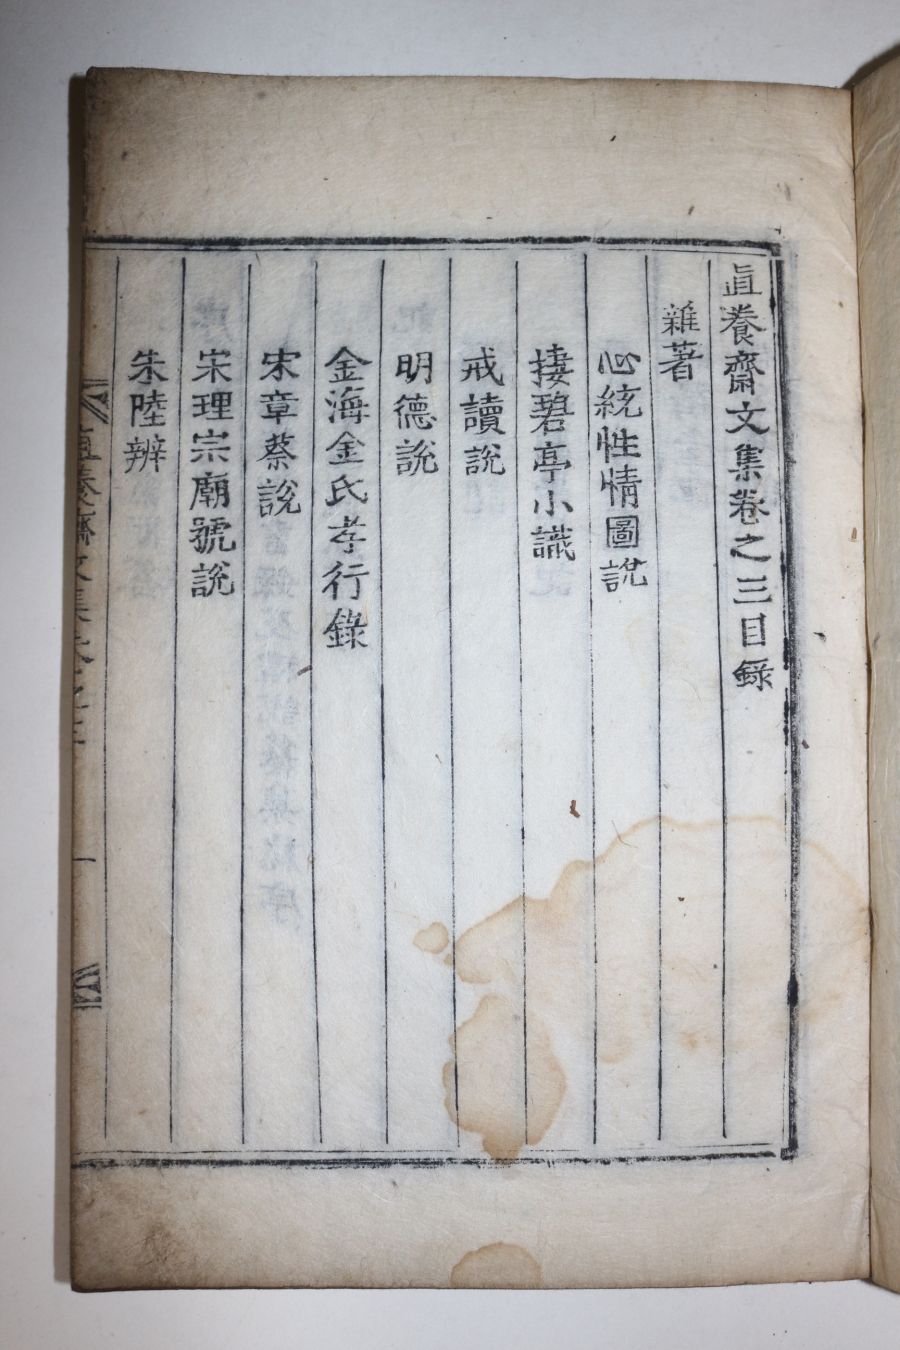 直養齋文集卷之三目錄
雜著
心統性情圖說
捿碧亭小識
戒讀說
明德說
金海金氏孝行錄
宋章蔡說
宋理宗廟號說
朱陸辨
直養齋文集卷之三
一